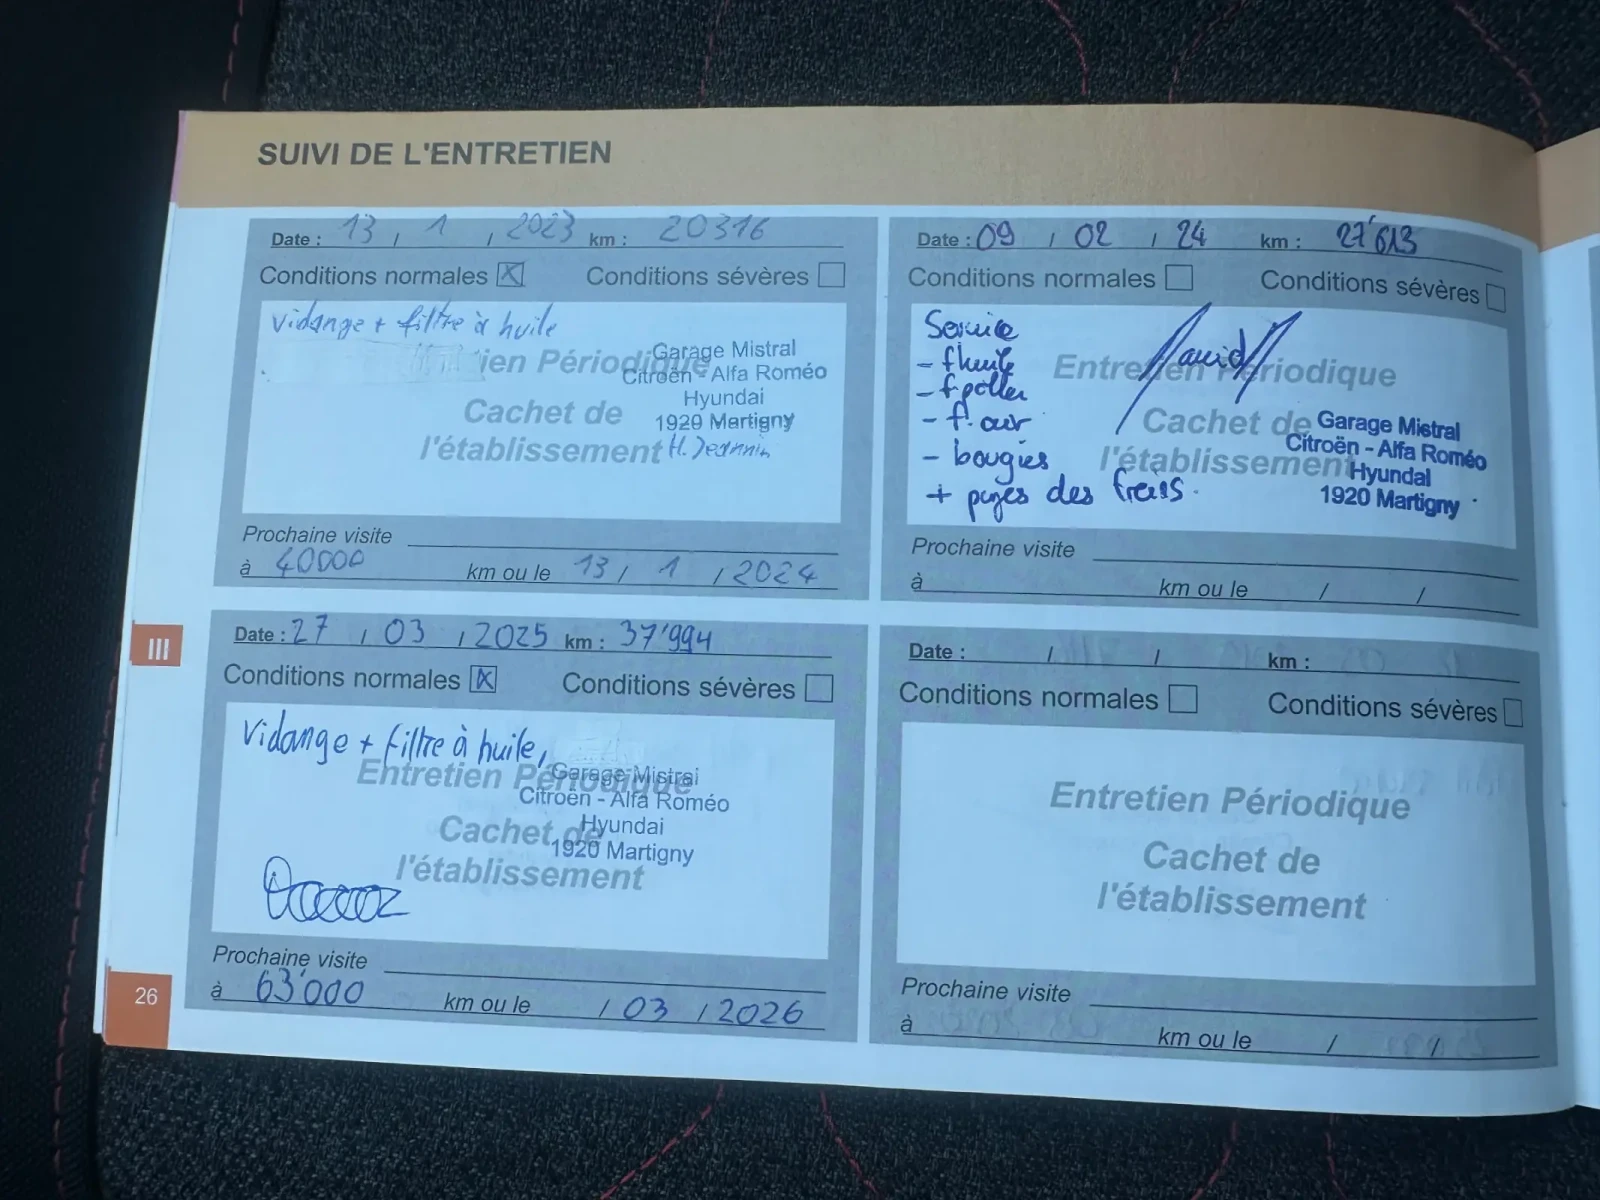 SUIVI DE L'ENTRETIEN
Date : 13 / 1 / 2023 km : 20316
Conditions normales X Conditions sévères
Vidange + filtre à huile
ien Périodique
Cachet de
l'établissement
Garage Mistral
Citroën - Alfa Roméo
Hyundai
1920 Martigny
H. Jeannin
Prochaine visite
à 40000 km ou le 13 / 1 / 2024
Date : 09 / 02 / 24 km : 27'613
Conditions normales Conditions sévères
Service
- f huile
- f. pollen
- f. air
- bougies
+ purges des freins.
Entretien Périodique
Cachet de
l'établissement
Garage Mistral
Citroën - Alfa Roméo
Hyundai
1920 Martigny
Prochaine visite
à km ou le / /
III
Date : 27 / 03 / 2025 km : 37'994
Conditions normales X Conditions sévères
Vidange + filtre à huile,
Entretien Périodique
Cachet de
l'établissement
Garage Mistral
Citroën - Alfa Roméo
Hyundai
1920 Martigny
Prochaine visite
à 63'000 km ou le / 03 / 2026
Date : / / km :
Conditions normales Conditions sévères
Entretien Périodique
Cachet de
l'établissement
Prochaine visite
à km ou le / /
26